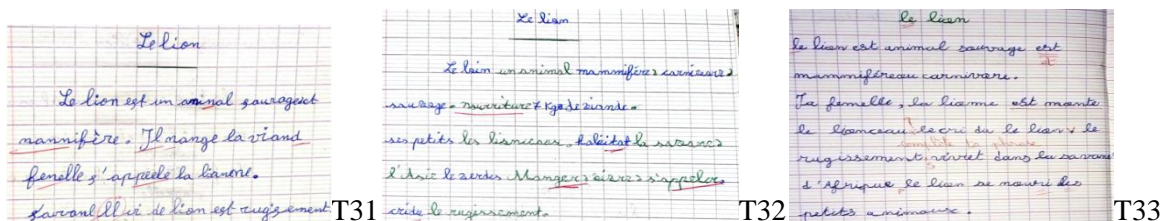 Le lion
Le lion est un aninal sauvageet
mannifère. Il mange la viand
fenelle s'appelle la lionne.
de lion est rugissement
T31
Le lion
Le loin un animal mammifères carnivores
sauvage. nourriture 7 Kg de viande.
ses petits les lionceaux. habitat la savane
l'Asie le zerdes Manger s'appeler
cride le rugissement.
T32
le lion
le lion est animal sauvage est
mammiféreau carnivore.
Ta femelle, la lionne est
le lionceau le cri du le lion le
complète ta phrase
rugissement vivret dans la savane
d'Afrique le lion se nouri des
petits animaux.
T33